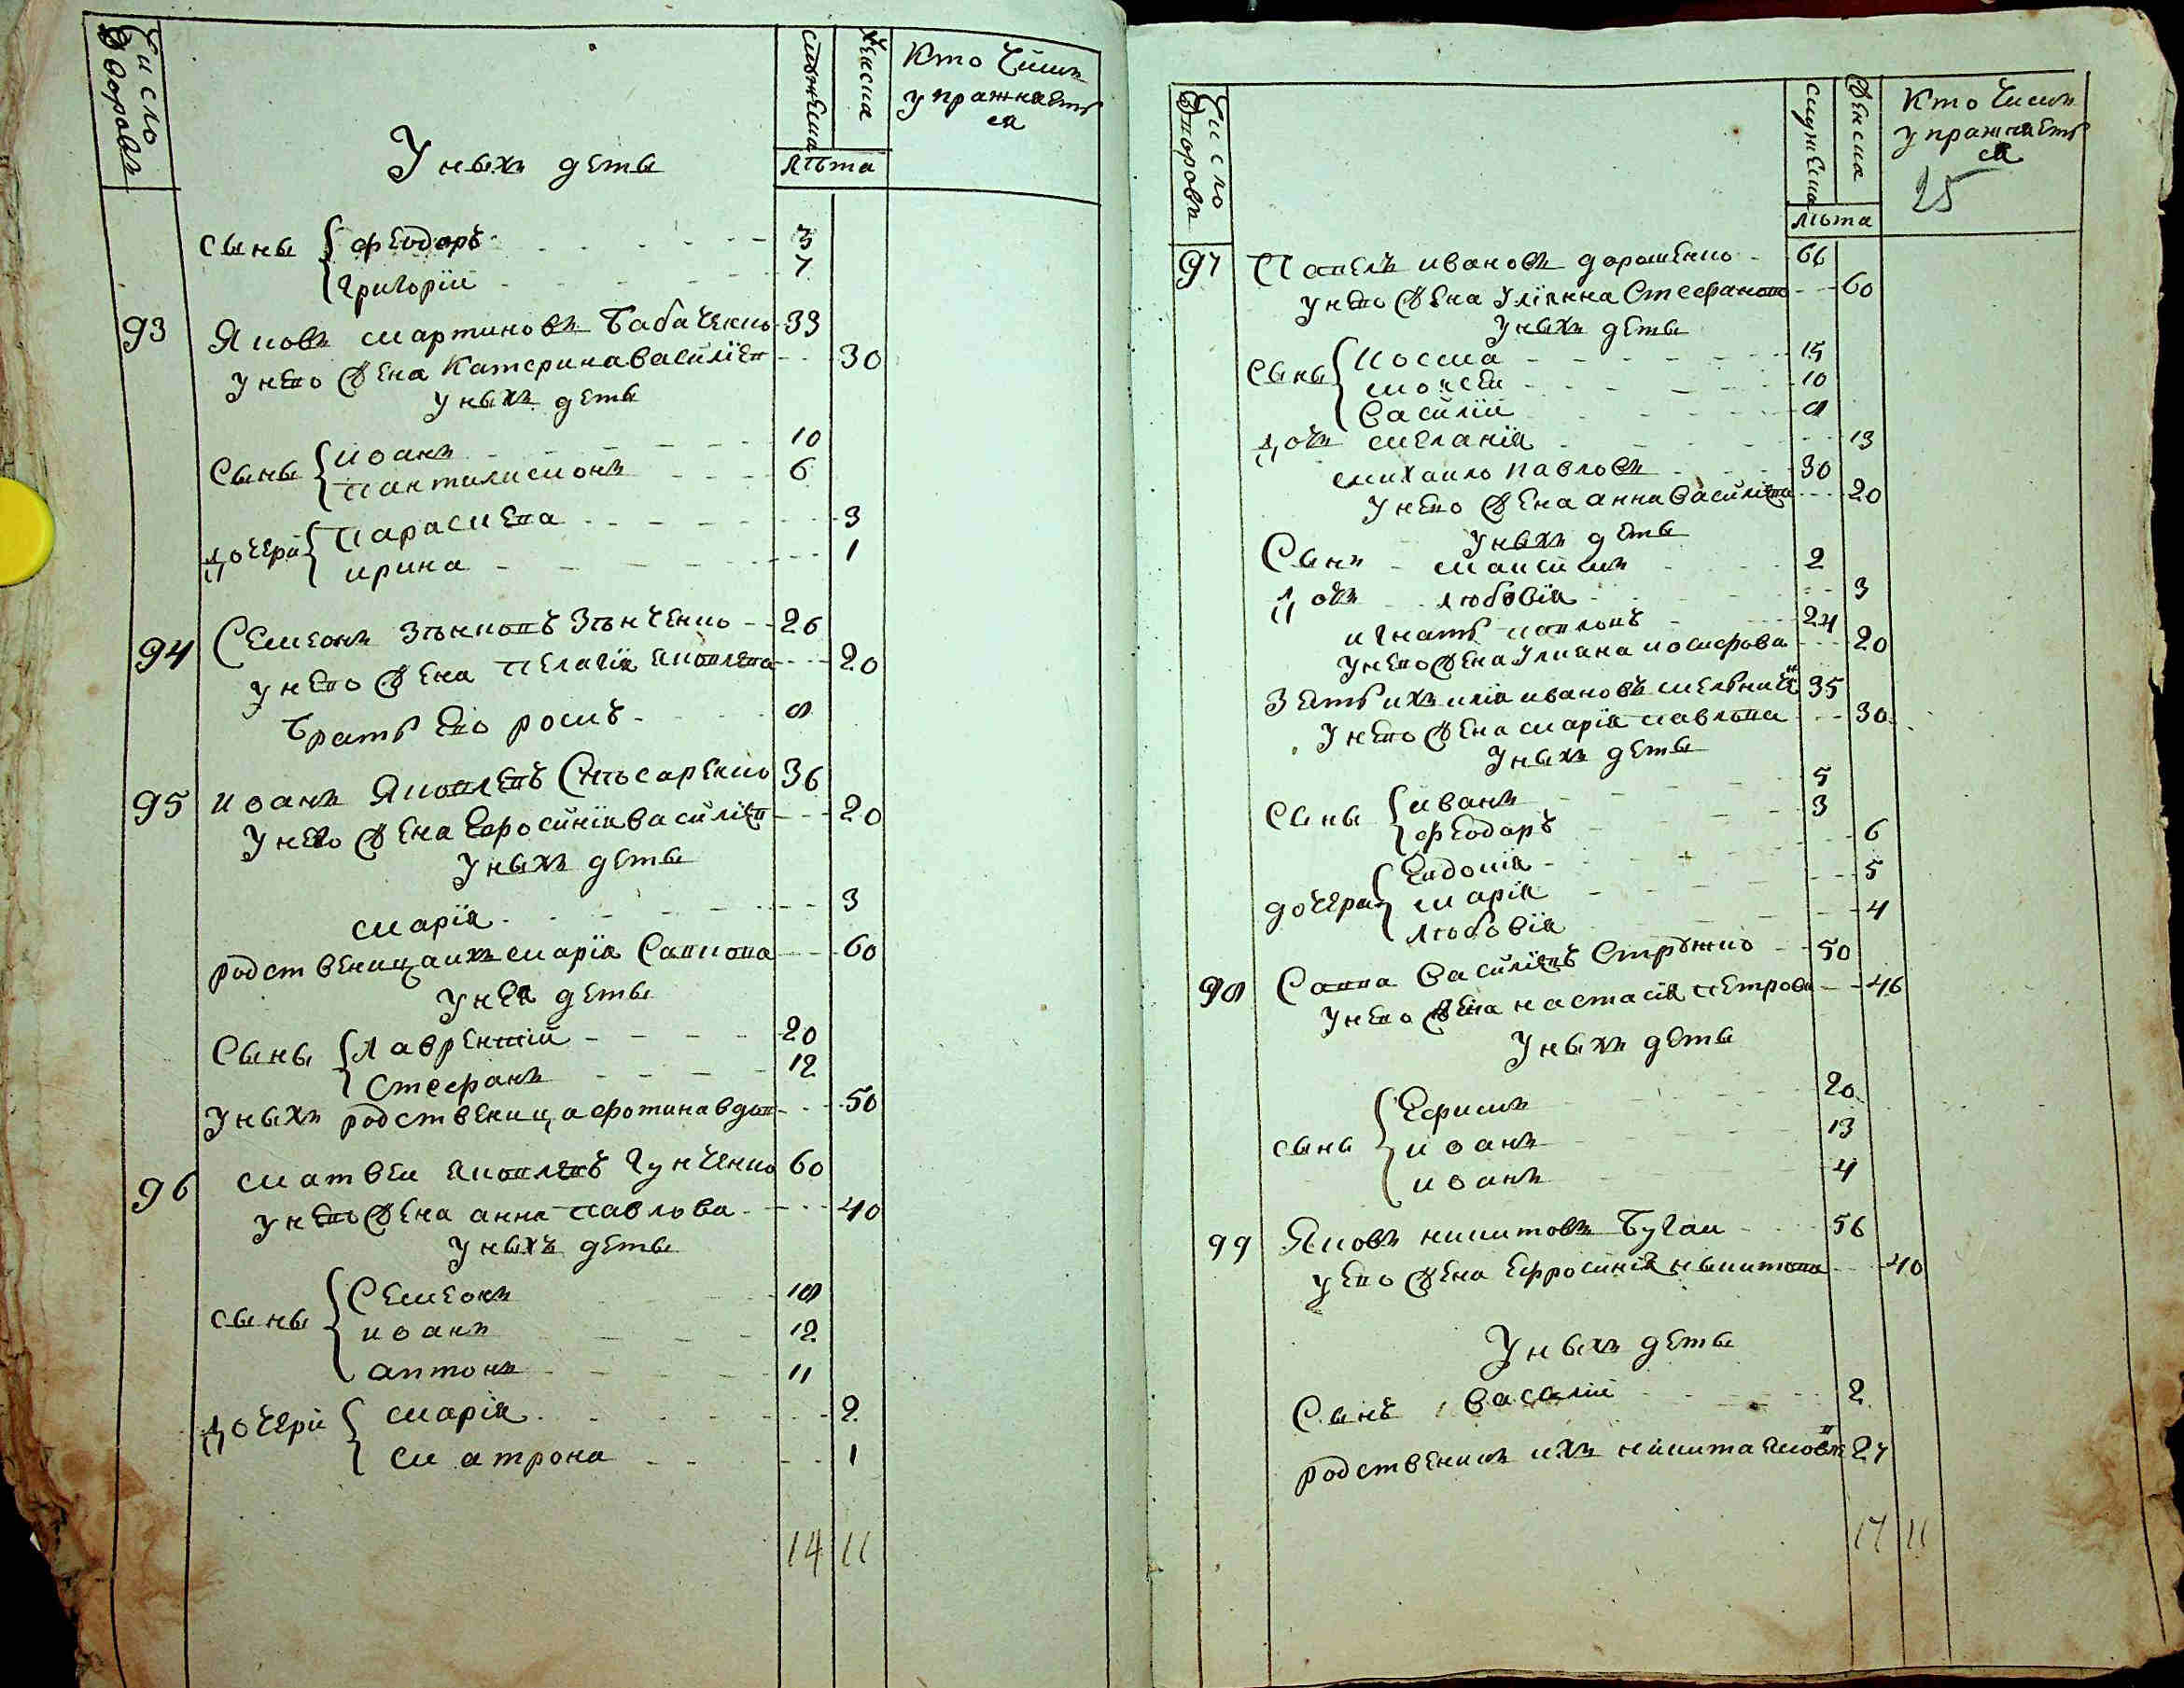 Число дворовъ
мужеска
женска
лѣта
Кто чимъ
упражнаеть
ся
У ныхъ деты
Сыны Феодоръ 3
Григорій 7
93 Яковъ Мартиновъ Бабаченко 33
У нево жена Катерина Василіев 30
У ныхъ деты
Сыны Иоанъ 10
Пантилимонъ 6
Дочери Параскева 3
Ирина 1
94 Семеонъ Зѣнковъ Зѣнченко 26
У нево жена Пелагія Яковлева 20
Брать ево Романъ 8
95 Иоанъ Яковлевъ Слюсаренко 36
У нево жена Ефросинія Василіев 20
У ныхъ деты
Марія 3
родственица ихъ Марія Савкова 60
У нея деты
Сыны Лаврентій 20
Стефанъ 12
У ныхъ родствениц а Фотина вдов 50
96 Матвеи Яковлевъ Гунченко 60
У нево жена Анна Павлова 40
У ныхъ деты
Сыны Семеонъ 18
Иоанъ 12
Антонъ 11
Дочери Марія 2
Матрона 1
14 11
Число дворовъ
мужеска
женска
лѣта
Кто чимъ
упражнаеть
ся
25
97 Павелъ Ивановъ Дорошенко 66
У нево жена Уліянна Стефанова 60
У ныхъ деты
Сыны Косма 15
Моисей 10
Василій 8
Дочь Меланія 13
Михаило Павловъ 30
У нево жена Анна Василіева 20
У ныхъ деты
Сынъ Максимъ 2
Дочь Любовія 3
Игнать Павловъ 24
У нево жена Улиана Иосифова 20
Зеть ихъ Илія Ивановъ Мельникъ 35
У нево жена Марія Павлова 30
У ныхъ деты
Сыны Иванъ 5
Феодоръ 3
Дочери Евдокія 6
Марія 5
Любовія 4
98 Савва Василіевъ Стрижко 50
У нево жена Настасія Петрова 46
У ныхъ деты
Сыны Ефимъ 20
Иоанъ 13
Иоанъ 4
99 Яковъ Никитовъ Бугаи 56
У ево жена Ефросинія Никитова 40
У ныхъ деты
Сынъ Василій 2
родственикъ ихъ Никита Яковле 27
17 11